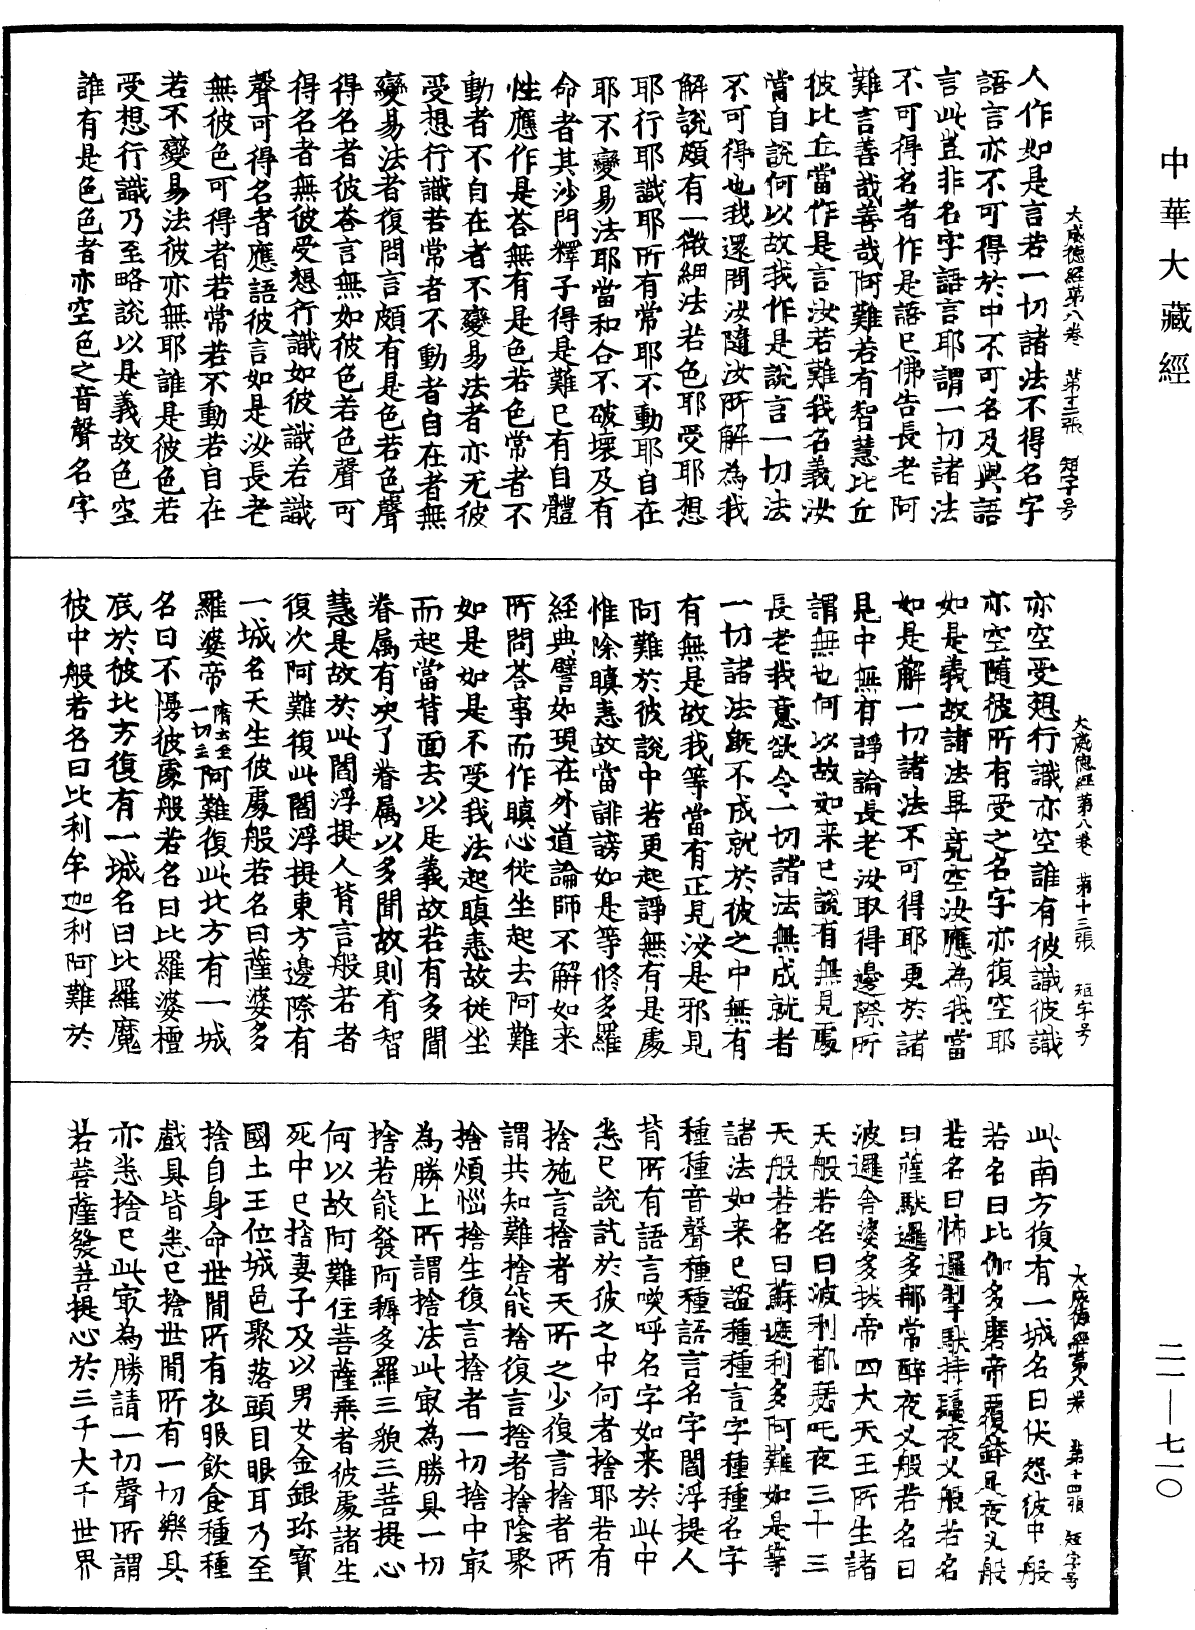 中華大藏經
大威德經第八卷 第十二張 短字号
人作如是言若一切諸法不得名字
語言亦不可得於中不可名及與語
言此豈非名字語言耶謂一切諸法
不可得名者作是語已佛告長老阿
難言善哉善哉阿難若有智慧比丘
彼比丘當作是言汝若難我名義汝
當自說何以故我作是說言一切法
不可得也我還問汝隨汝所解為我
解說頗有一微細法若色耶受耶想
耶行耶識耶所有常耶不動耶自在
耶不變易法耶當和合不破壞及有
命者其沙門釋子得是難已有自體
性應作是荅無有是色若色常者不
動者不自在者不變易法者亦无彼
受想行識若常者不動者自在者無
變易法者復問言頗有是色若色聲
得名者彼荅言無如彼色若色聲可
得名者無彼受想行識如彼識若識
聲可得名者應語彼言如是汝長老
無彼色可得者若常若不動若自在
若不變易法彼亦無耶誰是彼色若
受想行識乃至略說以是義故色空
誰有是色色者亦空色之音聲名字
大威德經第八卷 第十三張 短字号
亦空受想行識亦空誰有彼識彼識
亦空隨彼所有受之名字亦復空耶
如是義故諸法畢竟空汝應為我當
如是解一切諸法不可得耶更於諸
見中無有諍論長老汝取得邊際所
謂無也何以故如来已說有無見處
長老我意欲令一切諸法無成就者
一切諸法既不成就於彼之中無有
有無是故我等當有正見汝是邪見
阿難於彼說中若更起諍無有是處
惟除瞋恚故當誹謗如是等修多羅
經典譬如現在外道論師不解如来
所問荅事而作瞋心從坐起去阿難
如是如是不受我法起瞋恚故從坐
而起當背面去以是義故若有多聞
眷属有决了眷属以多聞故則有智
慧是故於此閻浮提人背言般若者
復次阿難復此閻浮提東方邊際有
一城名天生彼處般若名曰薩婆多
羅婆帝隋云至一切主阿難復此北方有一城
名曰不慢彼處般若名曰比羅婆檀
底於彼比方復有一城名曰比羅魔
彼中般若名曰比利牟迦利阿難於
大威德經第八卷 第十四張 短字号
此南方復有一城名曰伏怨彼中般
若名曰比伽多磨帝覆鉢足夜叉般
若名曰怖邏制于䭾持鬘夜叉般若名
曰薩䭾邏多那常醉夜叉般若名曰
波邏舍婆多我帝四大天王所生諸
天般若名曰波利都瑟吒夜三十三
天般若名曰蘇遮利多阿難如是等
諸法如来已證種種言字種種名字
種種音聲種種語言名字閻浮提人
背所有語言喚呼名字如来於此中
悉已說訖於彼之中何者捨耶若有
捨施言捨者天所之少復言捨者所
謂共知難捨能捨復言捨者捨陰聚
捨煩惱捨生復言捨者一切捨中㝡
為勝上所謂捨法此㝡為勝具一切
捨若能發阿耨多羅三藐三菩提心
何以故阿難住菩薩乘者彼處諸生
死中已捨妻子及以男女金銀珎寶
國土王位城邑聚落頭目眼耳乃至
捨自身命世閒所有衣服飲食種種
戲具皆悉已捨世閒所有一切樂具
亦悉捨已此㝡為勝請一切聲所謂
若菩薩發菩提心於三千大千世界
二一—七一〇